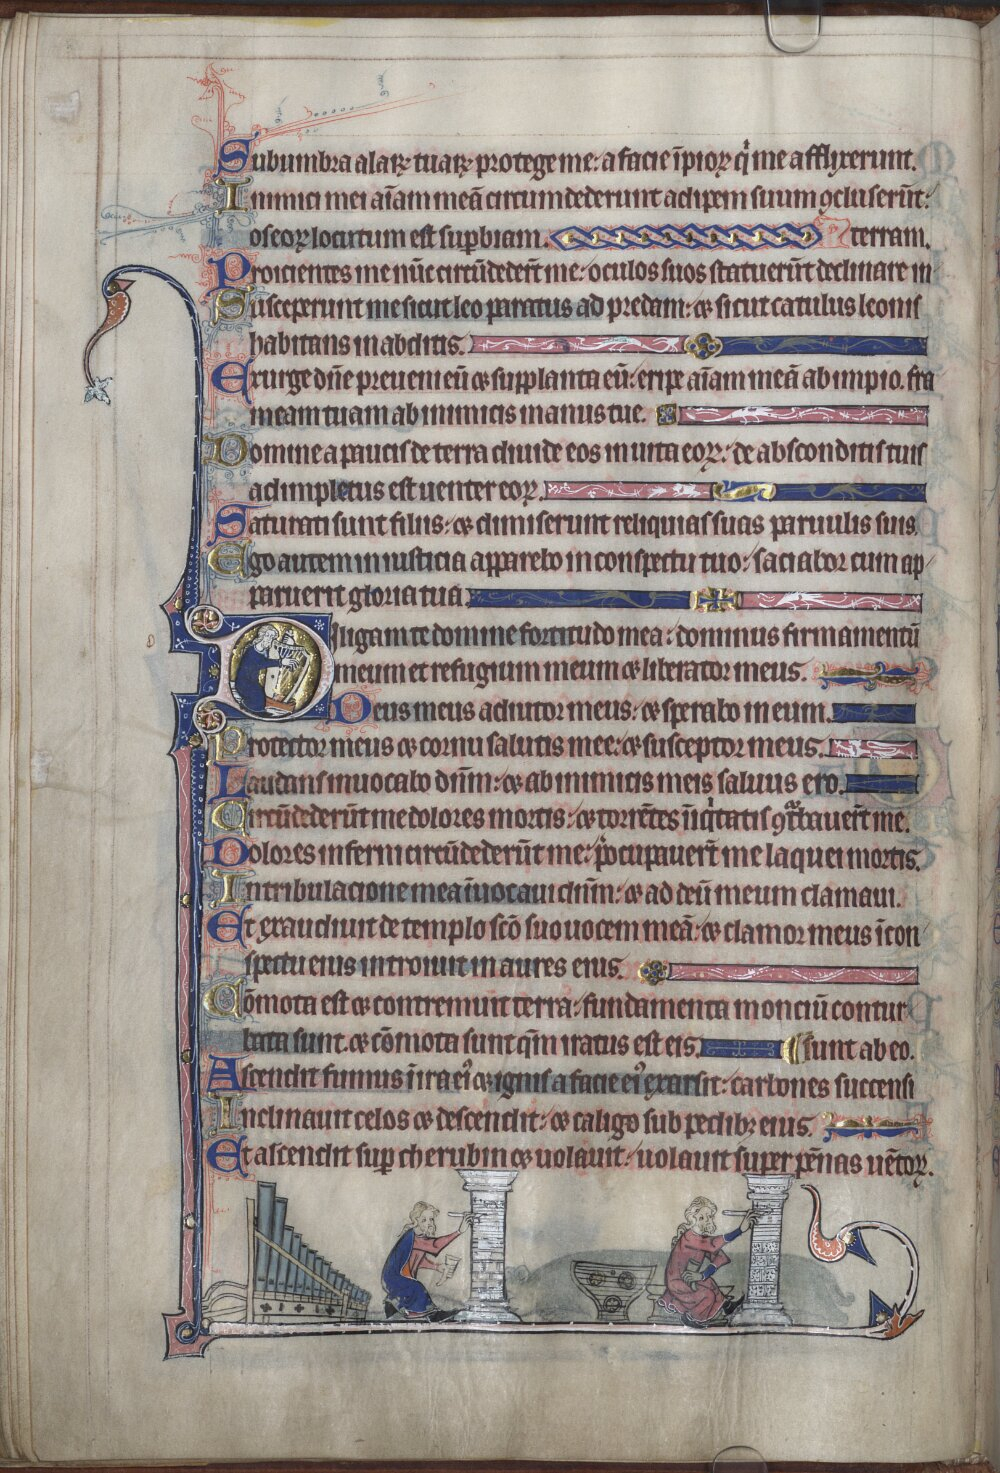 Sub umbra alaꝝ tuaꝝ protege me: a facie īpioꝝ qͥ me afflixerunt.
Inimici mei aīam meā circumdederunt adipem suum ꝯcluserūt:
os eoꝝ locutum est suꝑbiam. terram.
Proicientes me nūc circūdedert̄ me: oculos suos statuerūt declinare in
Susceperunt me sicut leo paratus ad predam: ⁊ sicut catulus leonis
habitans in abditis.
Exurge dn̄e preueni eū ⁊ supplanta eū: eripe aīam meā ab impio. fra
meam tuam ab inimicis manus tue.
Domine a paucis de terra diuide eos in uita eoꝝ: de absconditis tuis
adimpletus est uenter eoꝝ.
Saturati sunt filiis: ⁊ dimiserunt reliquias suas paruulis suis.
Ego autem in iusticia apparebo in conspectu tuo: saciabor cum ap
paruerit gloria tua.
Diligam te domine fortitudo mea: dominus firmamentū
meum et refugium meum ⁊ liberator meus.
Deus meus adiutor meus: ⁊ sperabo in eum.
Protector meus ⁊ cornu salutis mee: ⁊ susceptor meus.
Laudans inuocabo dn̄m: ⁊ ab inimicis meis saluus ero.
Circūdederūt me dolores mortis: ⁊ torrētes īiqͥtatis ꝯtͣbauert̄ me.
Dolores inferni circūdederūt me: p̄ocupauert̄ me laquei mortis.
In tribulacione mea īuocaui dn̄m: ⁊ ad deū meum clamaui.
Et exaudiuit de templo sc̄o suo uocem meā: ⁊ clamor meus ī con
spectu eius introiuit in aures eius.
Cōmota est ⁊ contremuit terra: fundamenta monciū contur
bata sunt. ⁊ cōmota sunt qm̄ iratus est eis. sunt ab eo.
Ascendit fumus ī ira eiꝰ ⁊ ignis a facie eiꝰ exarsit: carbones succensi
Inclinauit celos ⁊ descendit: ⁊ caligo sub pedibꝫ eius.
Et ascendit suꝑ cherubin ⁊ uolauit: uolauit super pēnas uētoꝝ.